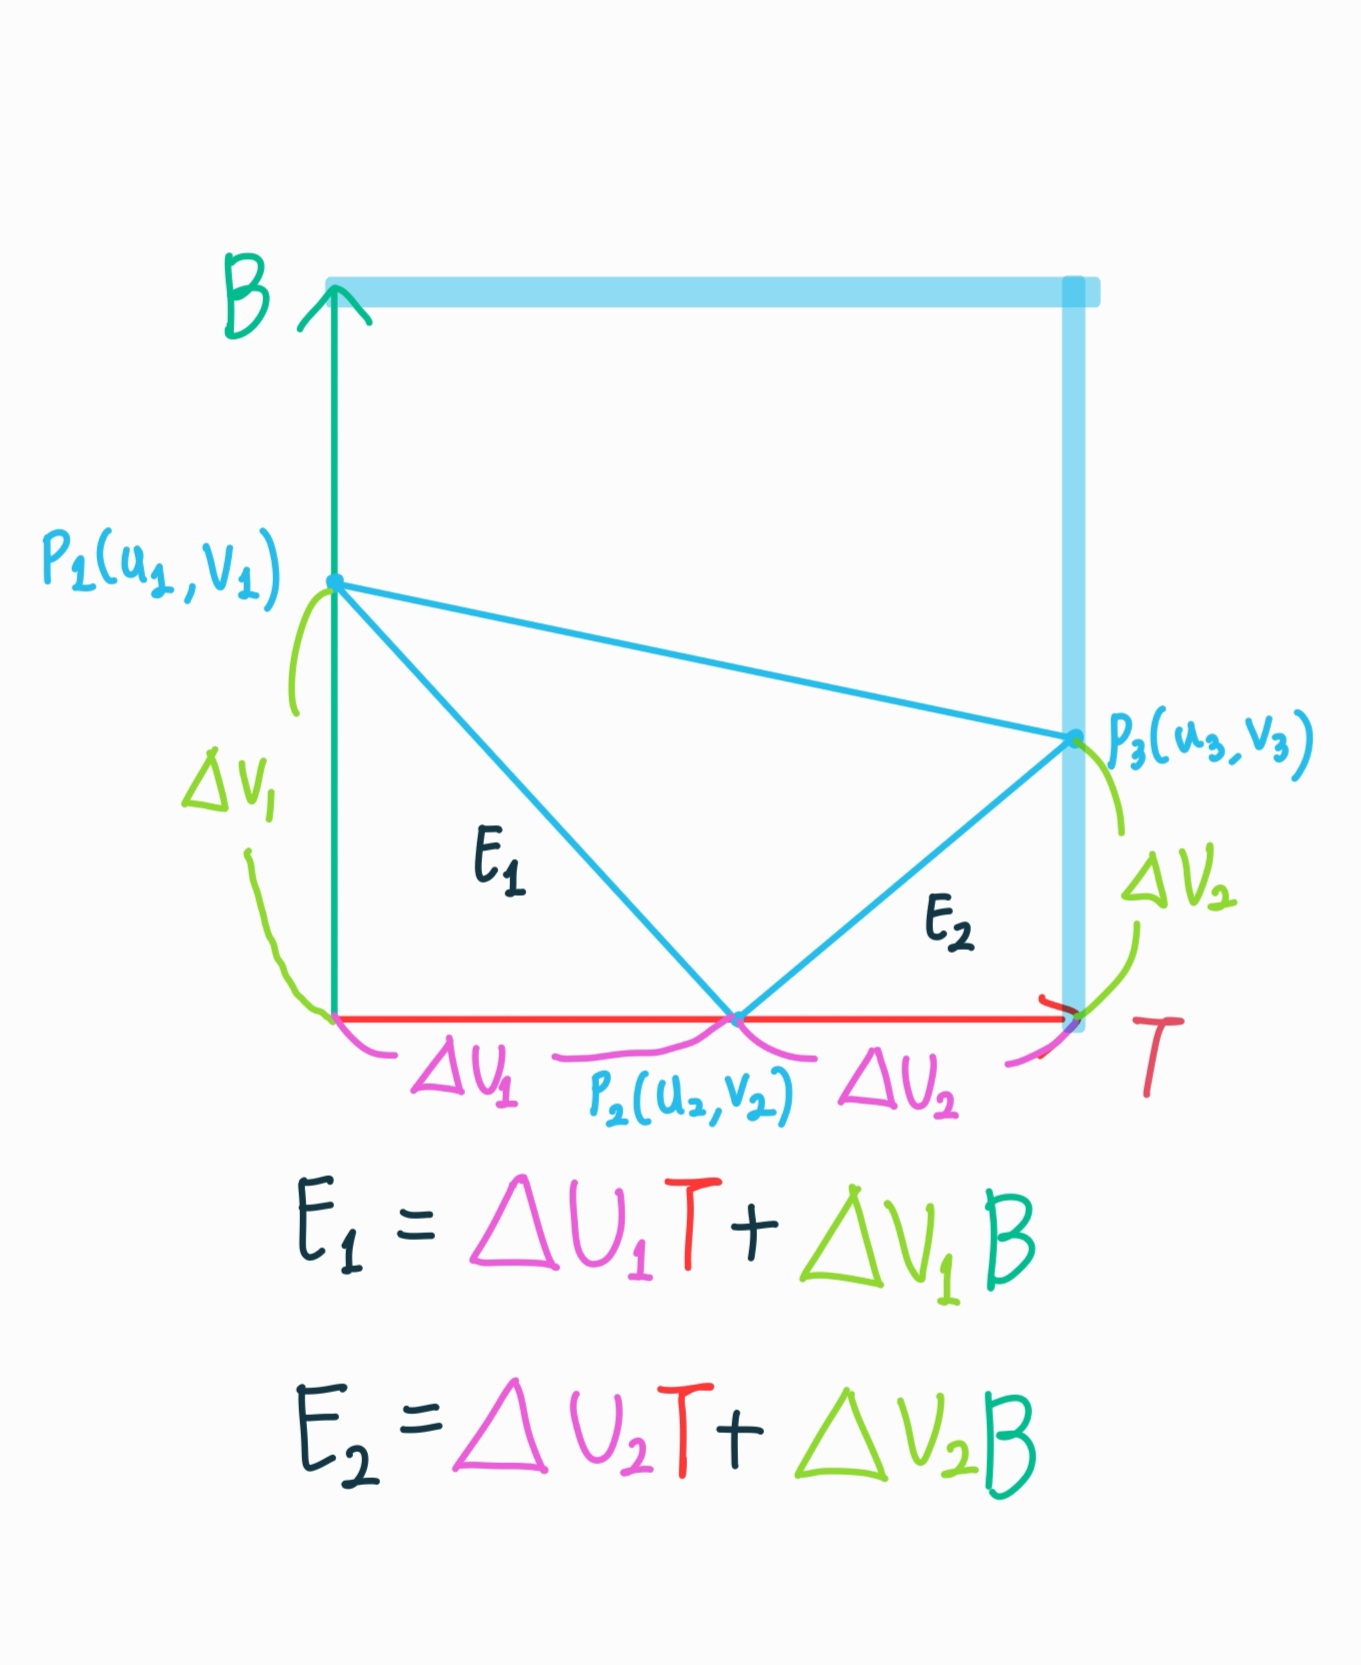 B
P1(u1,V1)
P3(u3,V3)
ΔV1
E1
ΔV2
E2
ΔU1
P2(u2,V2)
ΔU2
T
E1 = ΔU1T + ΔV1B
E2 = ΔU2T + ΔV2B